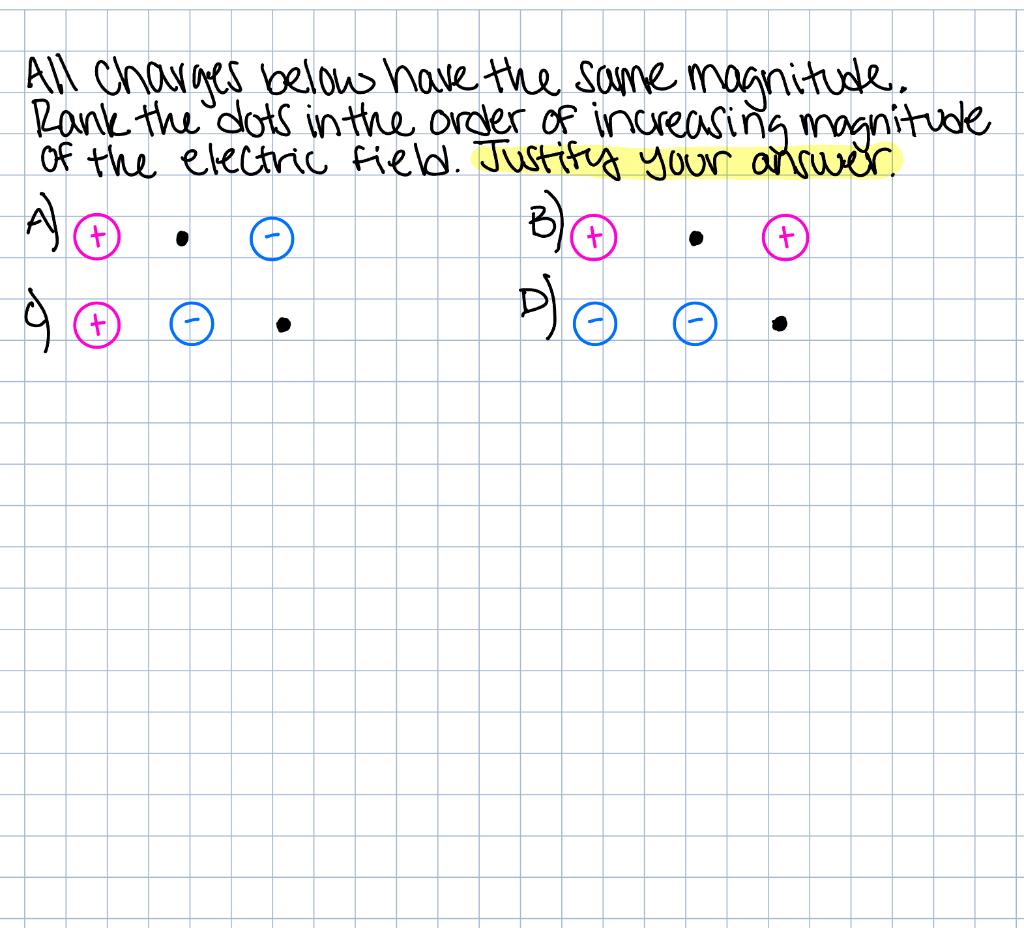 All charges below have the same magnitude.
Rank the dots in the order of increasing magnitude
of the electric field. Justify your answer.
A) + • - B) + • +
C) + - • D) - - •